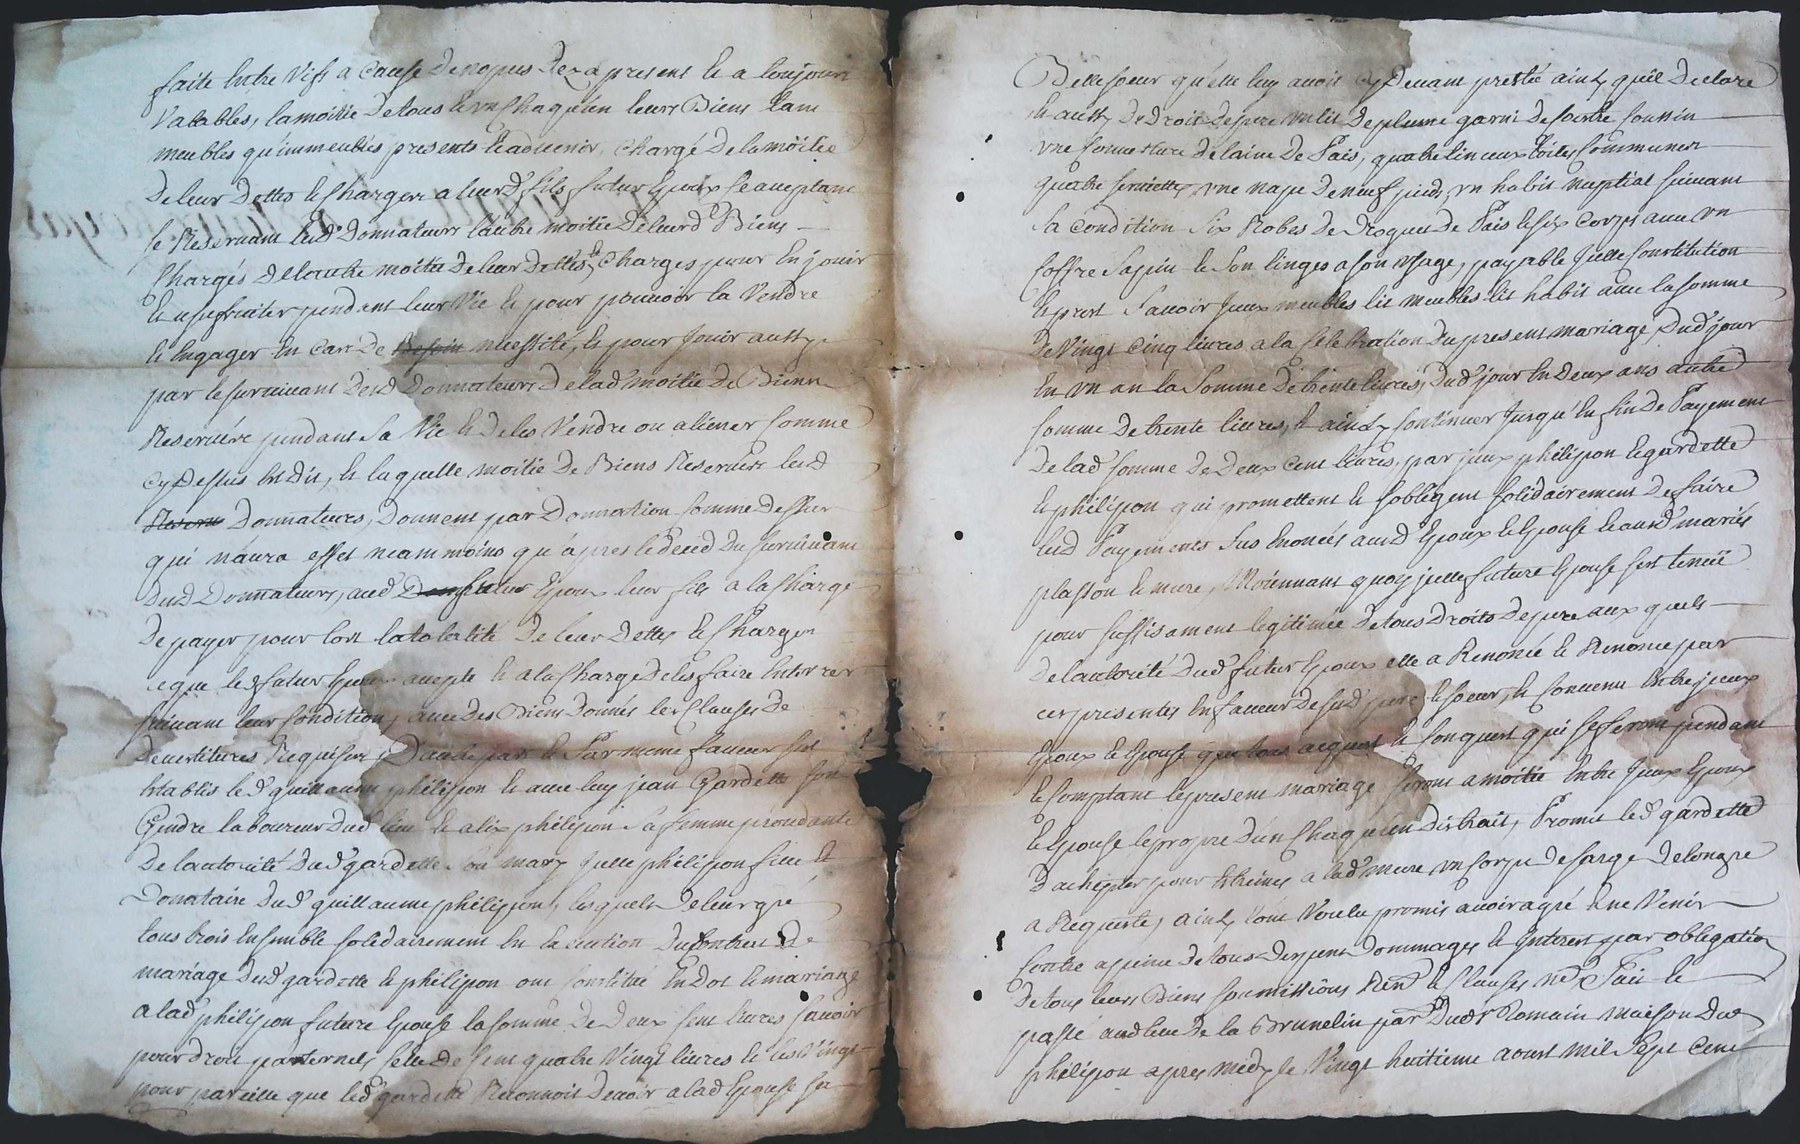 faite entre vifs a cause de nopces dez a present et a toujours
valables, la moitié de tous et un chaqu'un leurs Biens tant
meubles qu'immeubles presents et advenir, chargé de la moitié
de leur dettes et charges a leurd fils futur Epoux l'acceptant
se Reservant lesd Donnateurs l'autre moitié de leurd Biens
Chargés de l'autre moitié de leur dettes & charges pour En jouir
et usufruiter pendant leur vie et pour pouvoir la vendre
et Engager En cas de necessité, et pour jouir aussy
par le survivant desd Donnateurs de lad moitié de Biens
Reservée pendant sa vie et de les vendre ou aliener comme
cy dessus Est dit, et laquelle moitié de Biens Reservées lesd
Donnateurs, donnent par donnation comme dessus
qui n'aura effet neammoins qu'apres le deced du survivant
dud Donnateurs, aud Epoux leur fils a la charge
de payer pour lors la totalité de leur dettes et charges
ce que led futur Epoux accepte et a la charge de les faire Enterrer
suivant leur condition, avec des Biens donnés les clauses de
devestitures Requises, Dautre part et par meme faveur sest
Etablis led guillaume philippon et avec luy jean Gardette son
Gendre laboureur dud lieu et alix philippon sa femme procedante
de l'autorité dud gardette son mary jcelle philippon fille et
Donataire dud guillaume philippon, lesquels de leur gré
tous trois Ensemble solidairement En la caution du contrat de
mariage dud gardette et philippon ont constitué En dot et mariage
a lad philippon future Epouse la somme de deux cent livres savoir
pour droit paternels celle de cent quatre vingt livres et les vingt
pour pareille que led gardette Reconnoit devoir a lad Epouse sa
Belle soeur qu'elle luy avoit cy devant presté ainsy qu'il declare
et aussy de droit de pere un lit de plume garni de soutre coussin
une couverture de laine de Pais, quatre linceux toiles communes
quatre serviettes, une nape de neuf pieds, un habit nuptial suivant
sa condition six Robes de Droguet de Pais et six corps avec un
coffre sapin et son linges a son usage, payable jcelle constitution
et prest savoir jceux meubles lit meubles lit habit avec la somme
de vingt cinq livres a la celebration du present mariage, dud jour
En un an la somme de trente livres, dud jour En deux ans autre
somme de trente livres, et ainsy continuer jusqu'en fin de Payement
de lad somme de deux cent livres, par jceux philippon et gardette
et philippon qui promettent et s'obligent solidairement de faire
lesd Payements sus Enoncés aud Epoux et Epouse et aud mariés
plasson et mure, Moiennant quoy jcelle future Epouse sest tenuë
pour suffisament legitimée de tous droits de pere auxquels
de l'autorité dud futur Epoux elle a Renoncé et Renonce par
ces presentes En faveur de sesd pere et soeur, et convenu Entre jceux
Epoux et Epouse que tous acquest et conquest qui se feront pendant
et comptant le present mariage seront a moitié Entre jceux Epoux
et Epouse le propre d'un chaqu'un distrait, Promit led gardette
d'achepter pour Etreines a lad mure un corps de sarge de longre
a Requeste, ainsy l'ont voulu promis avoir agré et ne venir
contre a peine de tous depens dommages et Interest par obligation
de tous leurs Biens soumissions Ren.ons et clauses n.res Fait et
passé aud lieu de la Brunelin par dud Romain maison dud
philippon apres midy le vingt huitieme aoust mil Sept Cent